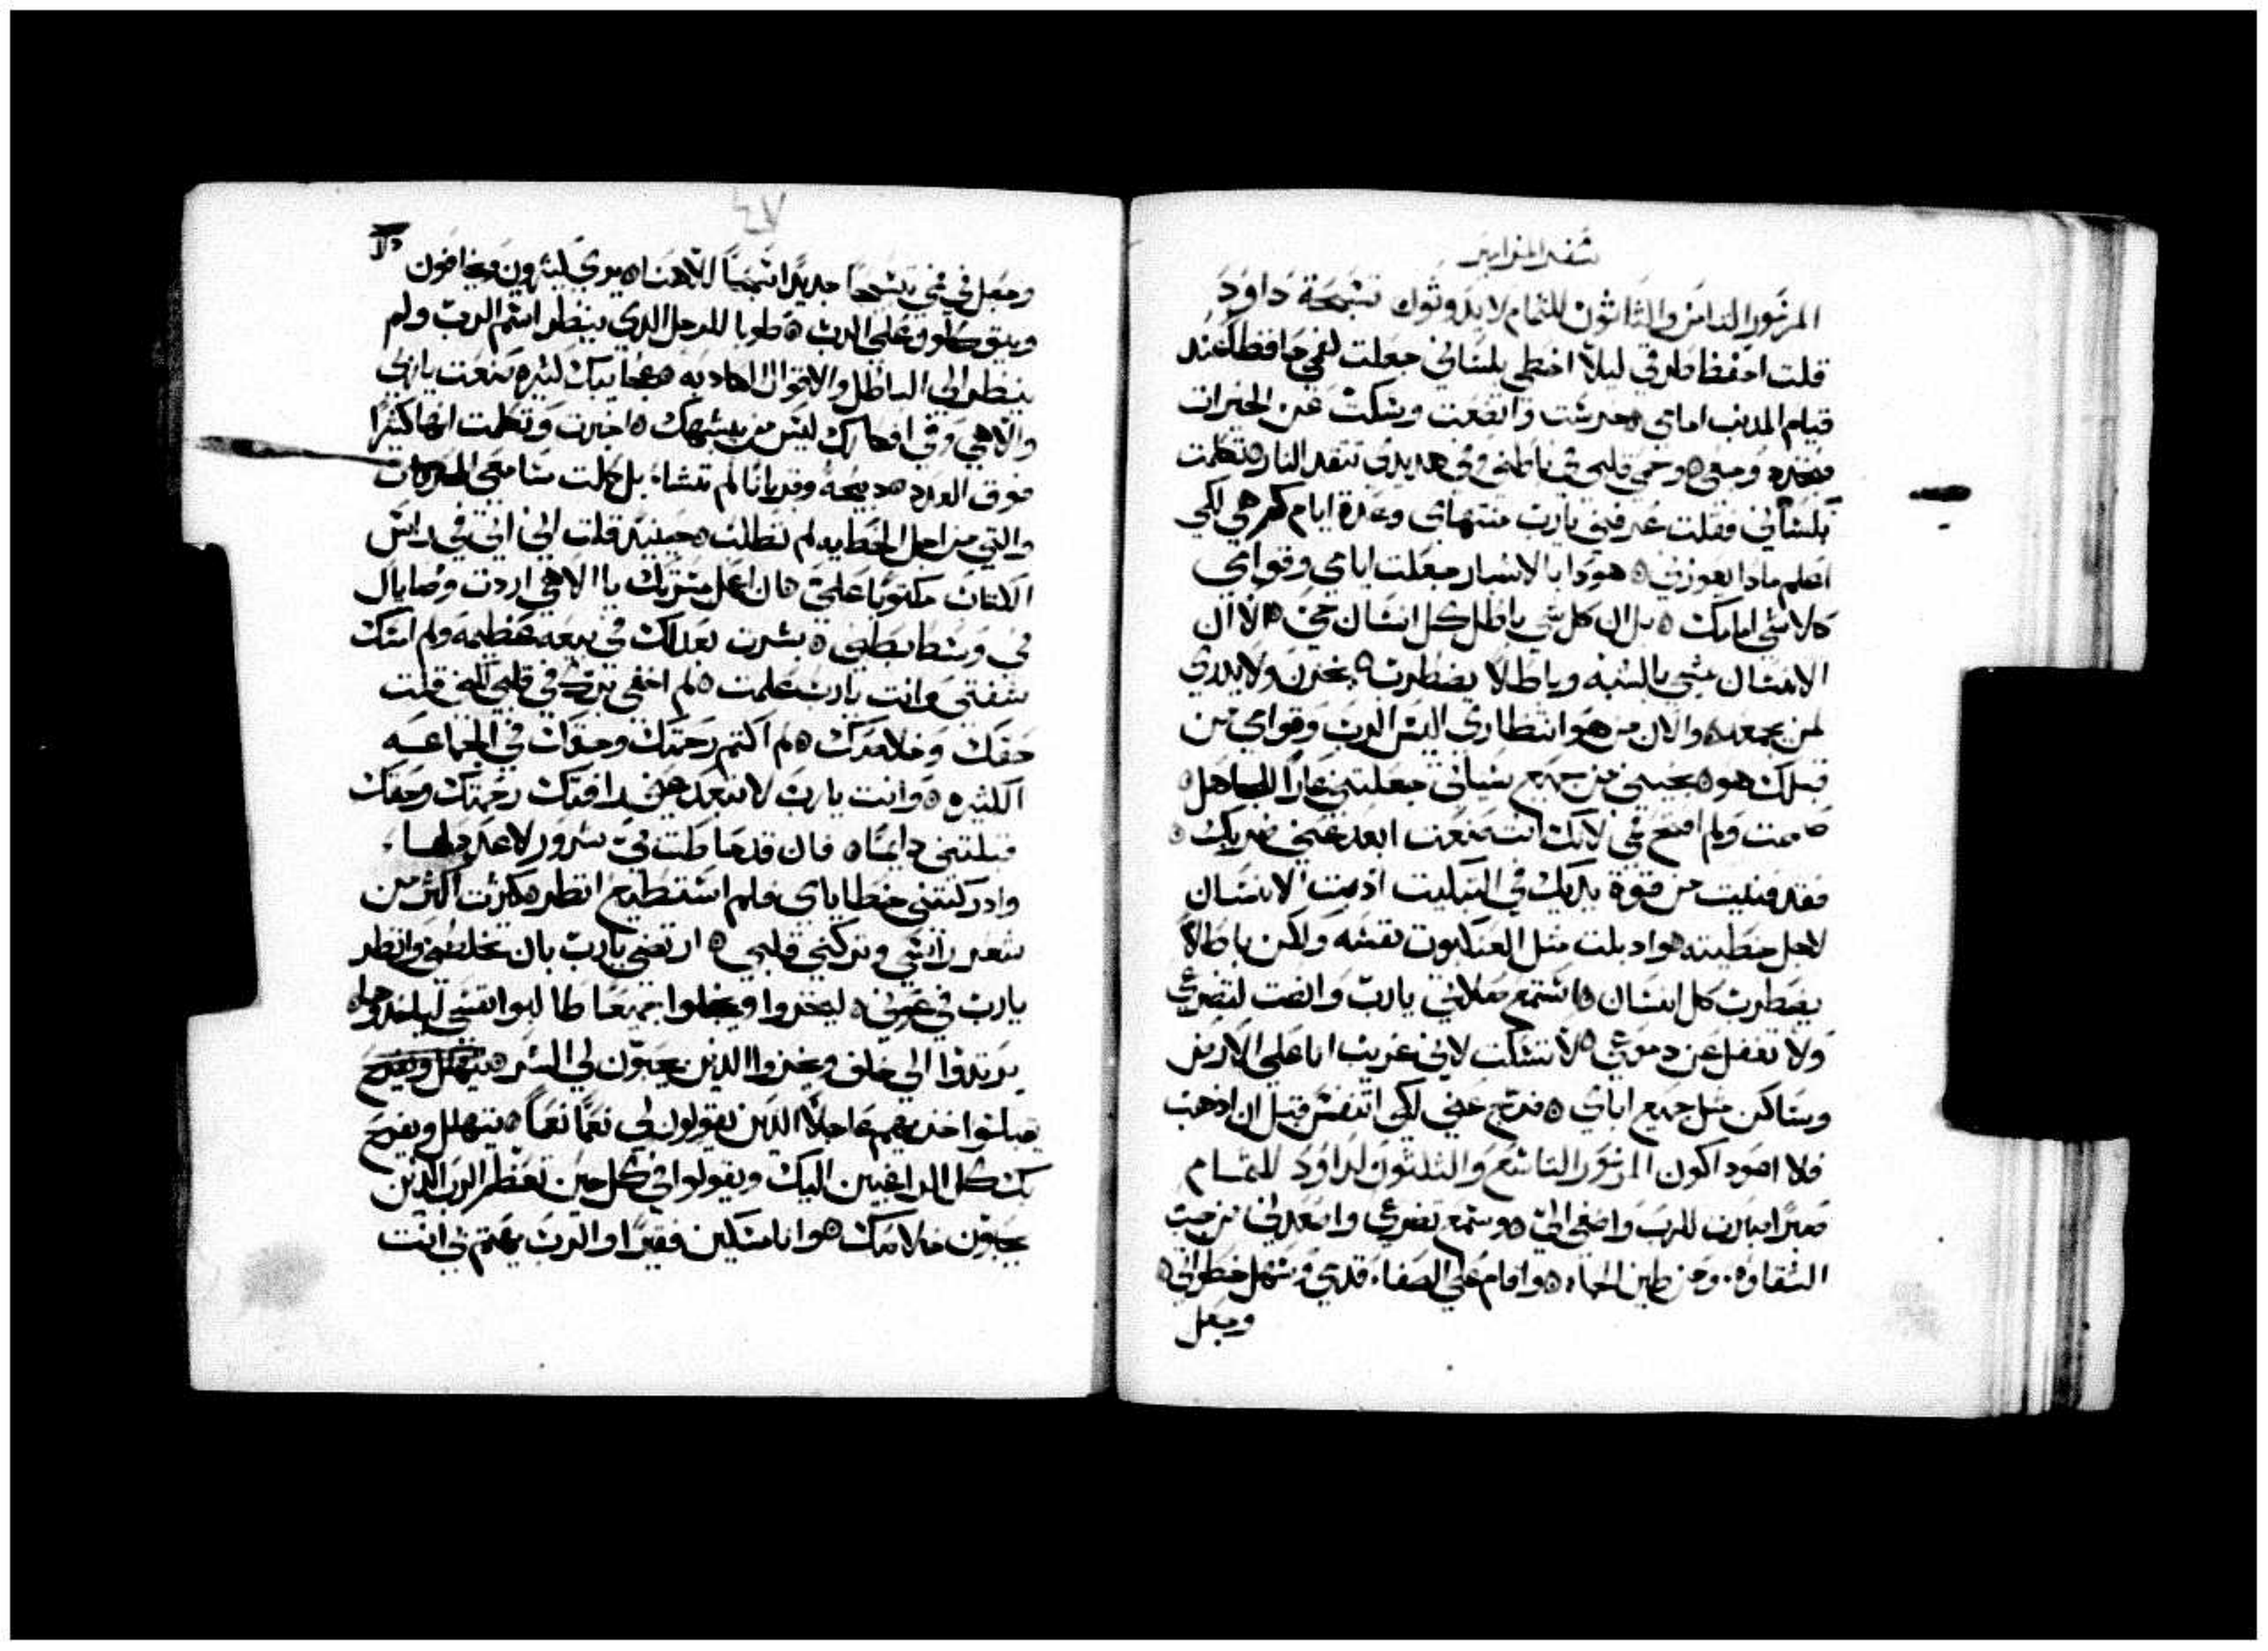 سفر المزامير
المزمور الثامن والثلاثون للتمام لايدوثوك تسبحة داود
قلت احفظ طرقي ليلا اخطي بلساني جعلت لفمي حافظا عند
قيام المدنب امامي خرست واتضعت وسكت عن الخيرات
فتجدد وجعي وحمي قلبي في باطني وفي هديدي تتقد النار تكلمت
بلساني فقلت عرفني يارب منتهاي وعدة ايام كم هي لكي
اعلم مادا يعوزني هودا بالاشبار جعلت ايامي وقوامي
كلاشي امامك بل ان كل شي باطل كل انسان حي الا ان
الانسان يمشي بالشبه وباطلا يضطرب يخزن ولا يدري
لمن يجمعه والان من هو انتظاري اليس الرب وقوامي من
قبلك هو نجيني من جميع سياتي جعلتني عارا للجاهل
صمت ولم افتح فمي لانك انت صنعت ابعد عني ضربك
فقد فنيت من قوة يديك في التبكيت ادبت الانسان
لاجل خطيته وادبلت مثل العنكبوت نفسه ولكن باطلا
يضطرب كل انسان استمع صلاتي يارب وانصت لتضرعي
ولا تغفل عن دموعي لا تسكت لاني غريب انا على الارض
وساكن مثل جميع اباي فرج عني لكي اتنفس قبل ان ادهب
فلا اعود اكون المزمور التاسع والثلثون لداود للتمام
صبرا صبرت للرب واصغى الي وسمع تضرعي واصعدني من جب
الشقاوه ومن طين الحماه واقام على الصفاه قدمي وسهل خطواتي
وجعل
٤٧
وجعل في فمي تسبيحا جديدا تسبيحا لالاهنا يرى كثيرون ويخافون
ويتوكلون على الرب طوبا للرجل الدي ينظر اسم الرب ولم
ينظر الى الباطل والاقوال الكادبه عجايبك كثيره صنعت ياربي
والاهي وفي افكارك ليس من يشبهك اخبرت وتكلمت انها كثيرا
فوق العدد دبيحة وقربانا لم تشاء بل كملت مسامعي المحرقات
والتي من اجل الخطيه لم تطلب حينيد قلت اني اتي في راس
الكتاب مكتوبا علي ان اعمل مسرتك يا الاهي اردت وصاياك
في وسط بطني بشرت بعدلك في بيعه عظيمه ولم امسك
شفتي وانت يارب علمت لم اخفي برك في قلبي لكني قلت
حقك وخلاصك لم اكتم رحمتك وحقك في الجماعه
الكثيره وانت يارب لا تبعد عني رافتك رحمتك وحقك
قبلتني دايما فان قد حاطت بي شرور لا عدد لها
وادركتني خطاياي فلم استطيع انظر كثرت اكثر من
شعر راسي وتركني قلبي ارتضي يارب بان تخلصني وانظر
يارب في عوني ليخزوا ويخجلوا جميعا طالبوا نفسي لياخدوها
يرتدوا الي خلف ويخزوا الدين يحبون لي الشر يتهلل ويفرح
يقبلوا خزيهم عاجلا الدين يقولون لي نعما نعما يتهلل ويفرح
بك كل الراغبين اليك ويقولوا في كل حين تعظم الرب الدين
يحبون خلاصك وانا مسكين فقيرا والرب يهتم بي انت